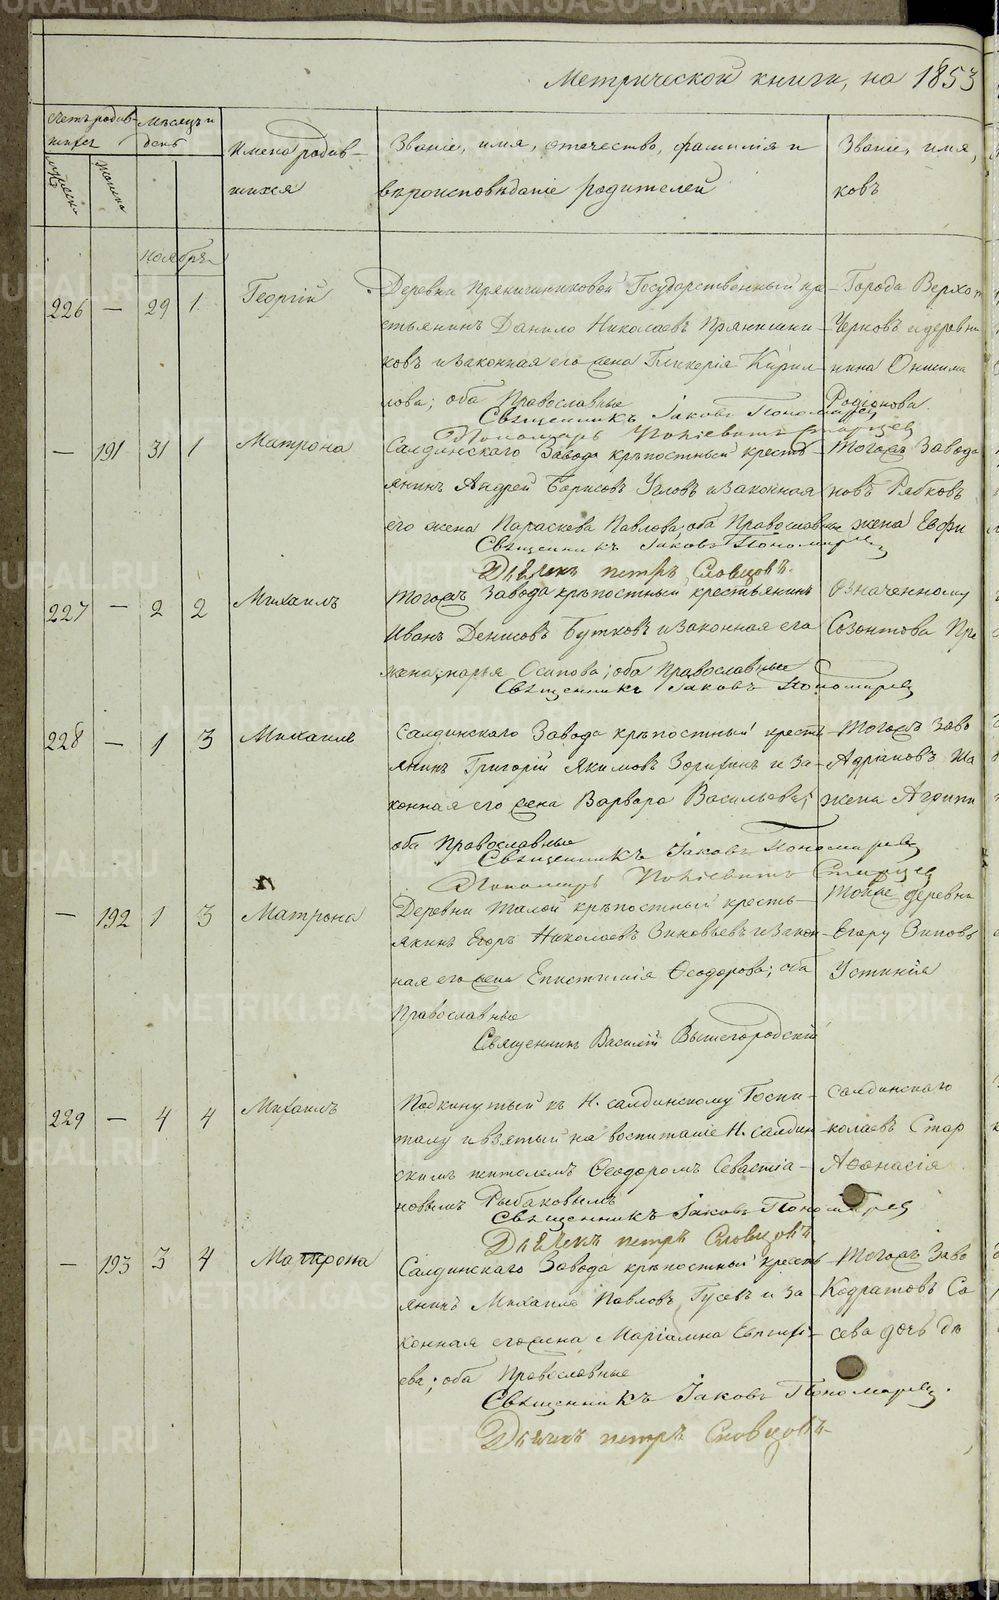 Метрической книги, на 1853
Счетъ родив-
шихся
Мѣсяцъ и
день
Имена родив-
шихся
Званіе, имя, отечество, фамилія и
вѣроисповѣданіе родителей
Званіе, имя,
ковъ
Ноябрь
226 — 29 1 Георгій
Деревни Прянишниковой Государственный кре-
стьянинъ Данило Николаевъ Прянишни-
ковъ и законная его жена Гликерія Кирил-
лова; оба Православные
Священникъ Іаковъ Пономаревъ
Пономарь Старцев
Города Верхот
Черковъ и деревни
нина Онисима
Родіонова
— 191 31 1 Матрона
Салдинскаго Завода крѣпостный кресть-
янинъ Андрей Борисовъ Угловъ и законная
его жена Параскева Павлова; оба Православные
Священникъ Іаковъ Пономаревъ
Дьячекъ Петръ Словцовъ.
Тогожъ Завода
новъ Рябковъ
жена Евфи
227 — 2 2 Михаилъ
Тогожъ Завода крѣпостный крестьянинъ
Иванъ Денисовъ Бутковъ и законная его
жена Марья Осипова; оба Православные
Священникъ Іаковъ Пономаревъ
Означенному
Созонтова Пра
228 — 1 3 Михаилъ
Салдинскаго Завода крѣпостный кресть-
янинъ Григорій Якимовъ Зорихинъ и за-
конная его жена Варвара Васильева;
оба Православные
Священникъ Іаковъ Пономаревъ
Пономарь Старцев
Тогожъ Заво
Адріановъ
жена Агрипи
— 192 1 3 Матрона
Деревни Малой крѣпостный кресть-
янинъ Егоръ Николаевъ Зиновьевъ и закон-
ная его жена Епистимія Ѳеодорова; оба
Православные
Священникъ Василій Вышегородскій
Тойже деревни
Егору Зиновь
Устинія
229 — 4 4 Михаилъ
Подкинутый къ Н. салдинскому Госпи-
талу и взятый на воспитаніе Н. салдин-
скимъ жителемъ Ѳеодоромъ Севастіа-
новымъ Рыбаковымъ
Священникъ Іаковъ Пономаревъ
Дьячекъ Петръ Словцовъ
Салдинскаго
колаевъ Стар
Аѳанасія
— 193 3 4 Матрона
Салдинскаго Завода крѣпостный кресть-
янинъ Михаило Павловъ Гусевъ и за-
конная его жена Маріамна Евгенiе-
ева; оба Православные
Священникъ Іаковъ Пономаревъ.
Дьячекъ Петръ Словцовъ
Тогожъ Заво
Кодратовъ Са
сева дочь дѣ
METRIKI.GASU-URAL.RU